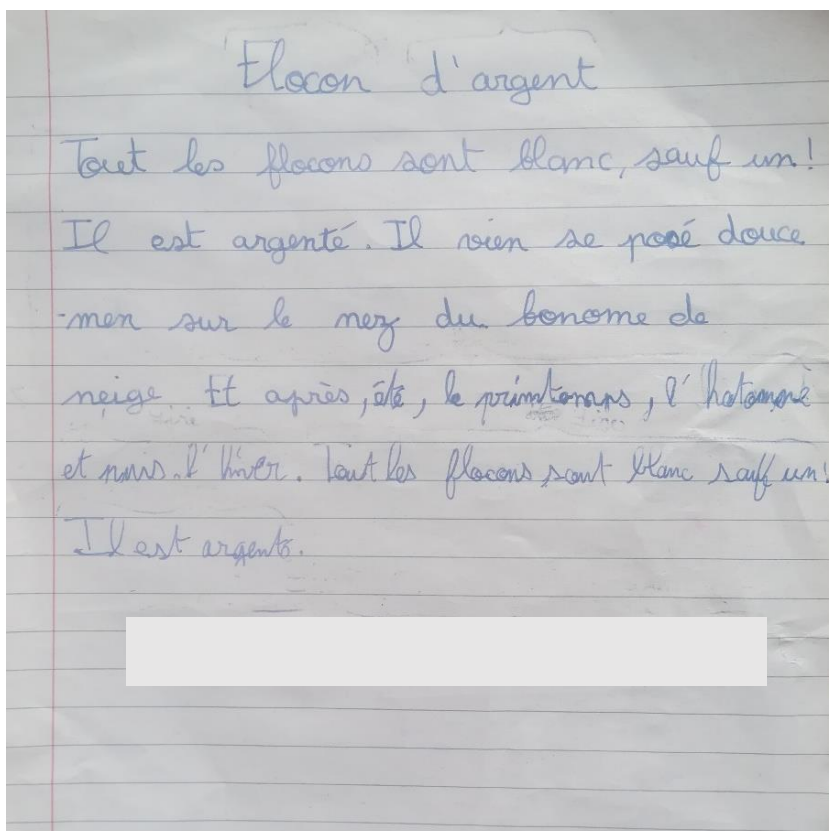 Flocon d'argent
Tout les flocons sont blanc, sauf un!
Il est argenté. Il vien se posé douce
-men sur le nez du bonome de
neige. Et après, été, le printemps, l'hatomne
et puis l'hiver. Tout les flocons sont blanc sauf un!
Il est argenté.